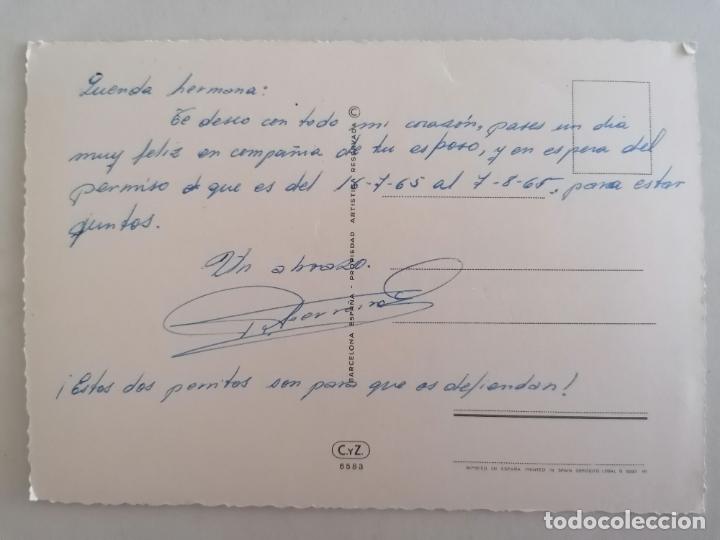 Querida hermana:
Te deseo con todo mi corazón, pases un dia
muy feliz en compañia de tu esposo, y en espera del
permiso que es del 18-7-65 al 7-8-65, para estar
juntos.
Un abrazo.
¡Estos dos perritos son para que os defiendan!
BARCELONA ESPAÑA - PROPIEDAD ARTISTICA RESERVADA ©
C.YZ.
6583
IMPRESO EN ESPAÑA PRINTED IN SPAIN DEPOSITO LEGAL B.
todocoleccion.net